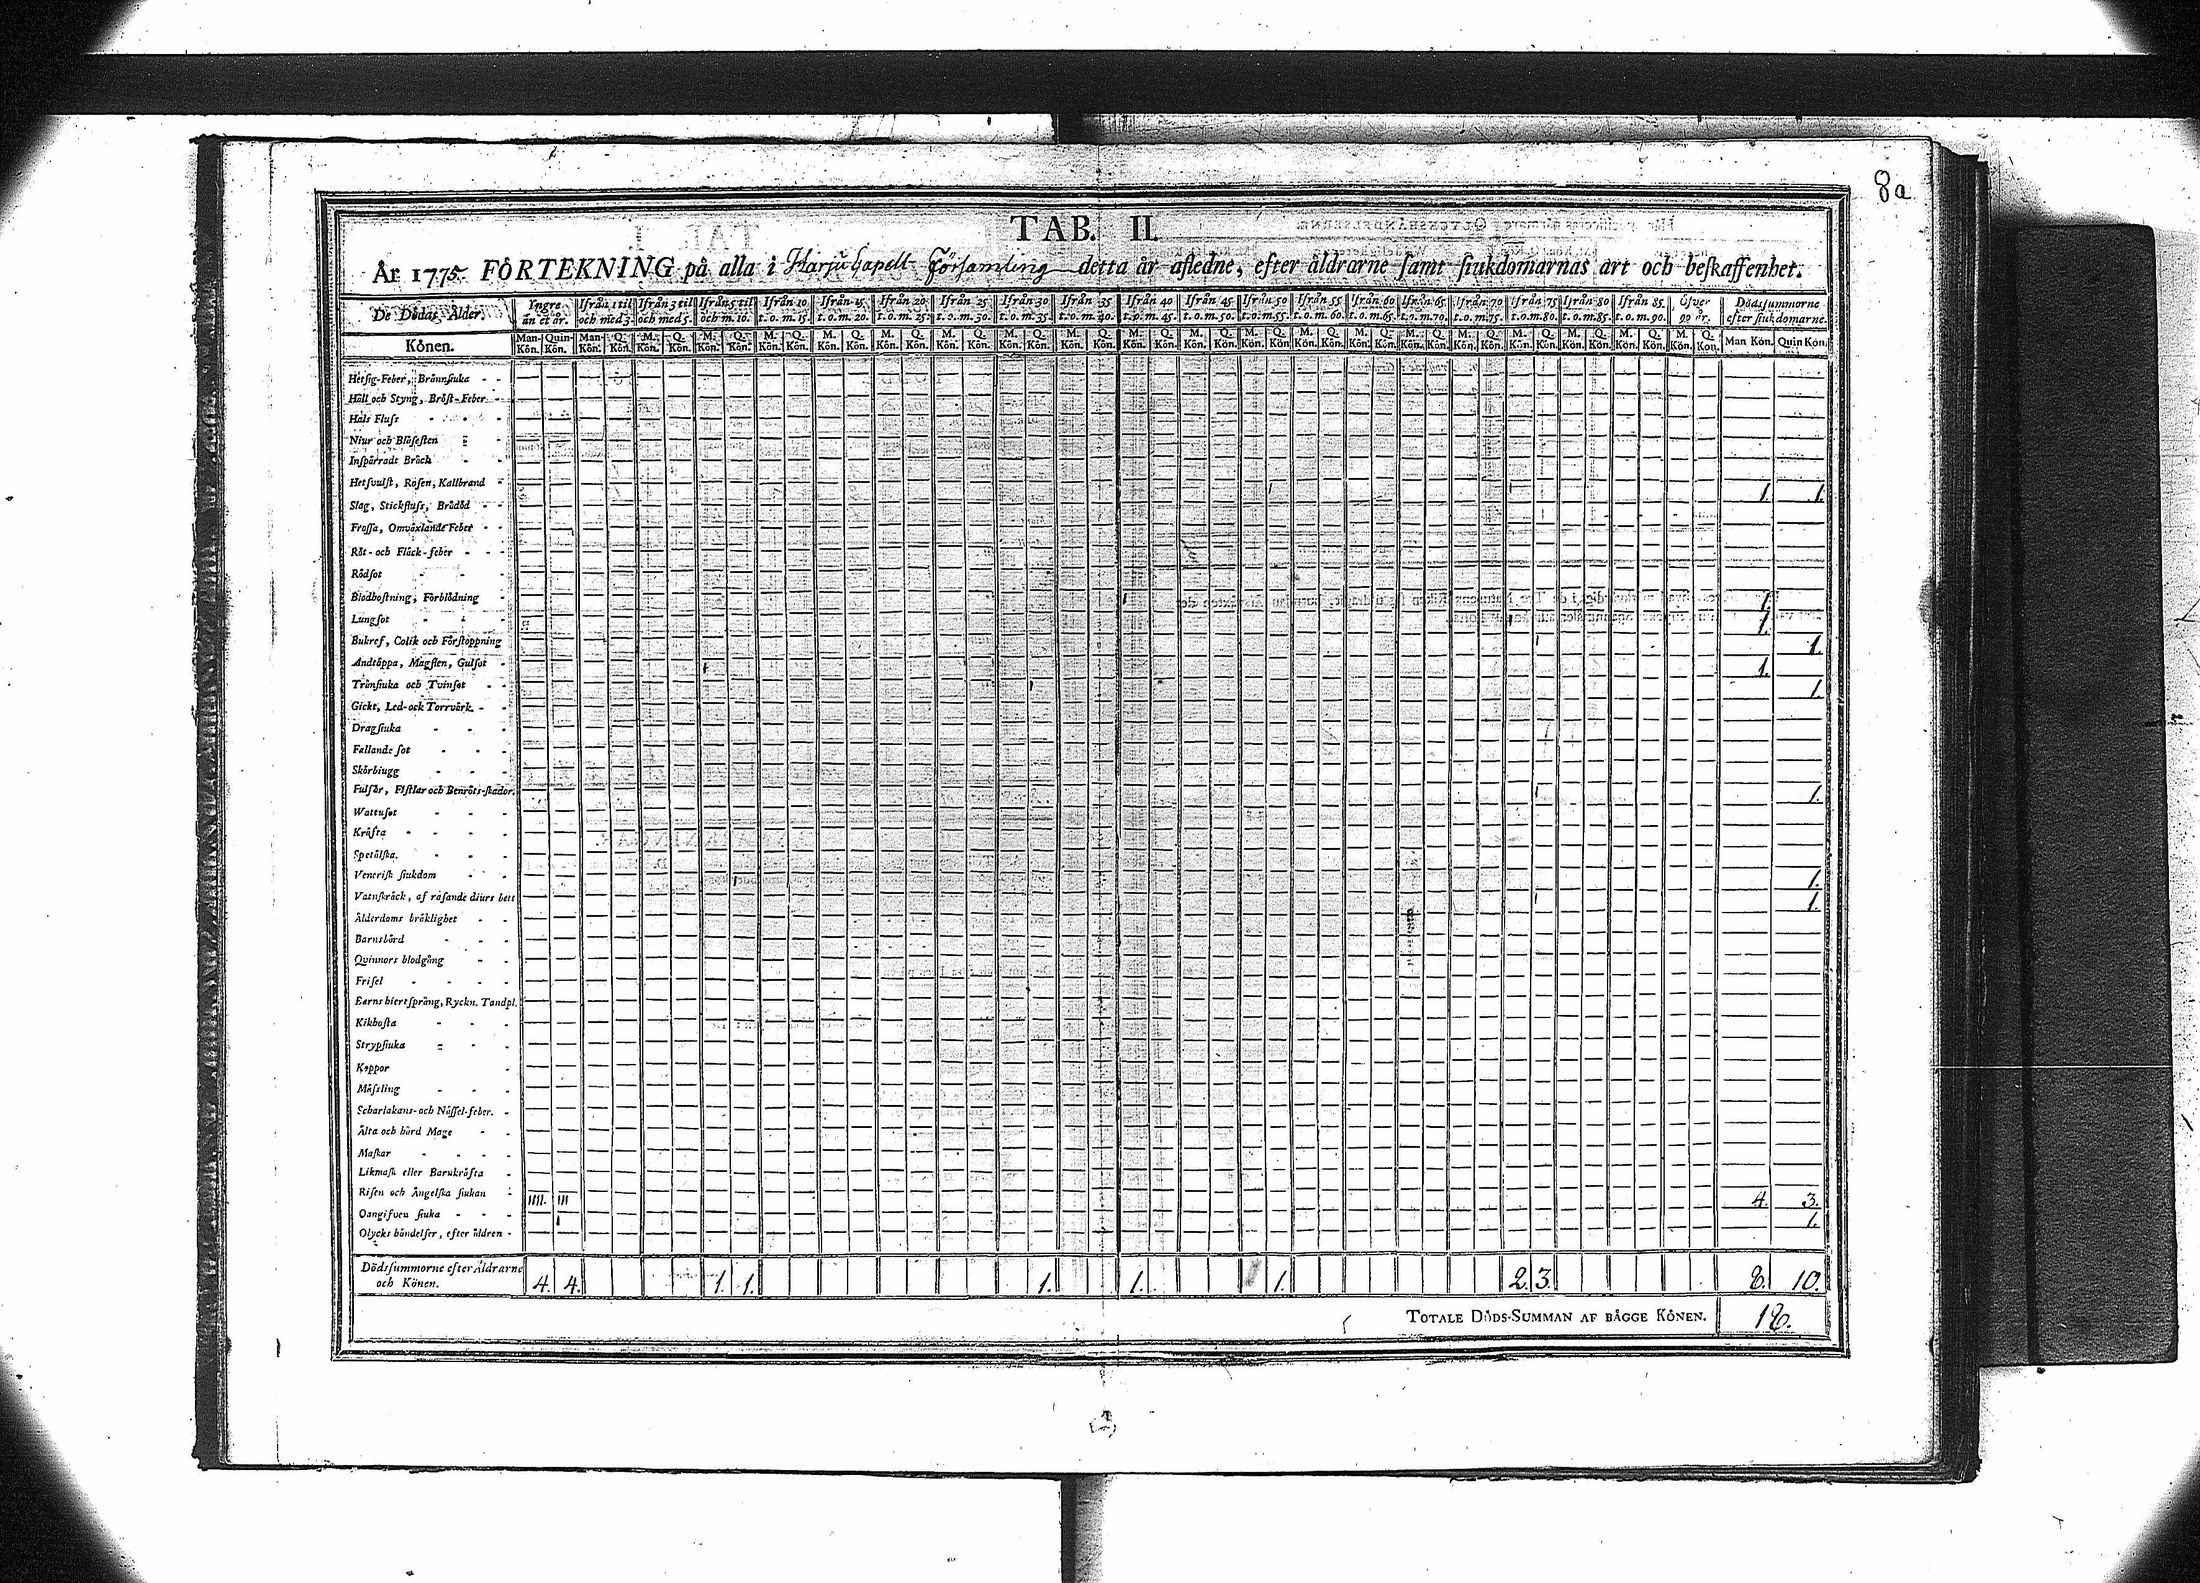 8a
TAB. II.
År 1775. FÖRTEKNING på alla i Harju Capell Församling detta år afledne, efter åldrarne samt siukdomarnas art och beskaffenhet.
De Dödas Ålder. Yngre än et år. Ifrån 1 til och med 3. Ifrån 3 til och med 5. Ifrån 5 til och m. 10. Ifrån 10 t. o. m. 15. Ifrån 15 t. o. m. 20. Ifrån 20 t. o. m. 25. Ifrån 25 t. o. m. 30. Ifrån 30 t. o. m. 35. Ifrån 35 t. o. m. 40. Ifrån 40 t. o. m. 45. Ifrån 45 t. o. m. 50. Ifrån 50 t. o. m. 55. Ifrån 55 t. o. m. 60. Ifrån 60 t. o. m. 65. Ifrån 65 t. o. m. 70. Ifrån 70 t. o. m. 75. Ifrån 75 t. o. m. 80. Ifrån 80 t. o. m. 85. Ifrån 85 t. o. m. 90. Öfver 90 år. Dödssummorne efter siukdomarne.
Könen. Man-Kön. Quin-Kön. Man-Kön. Q. Kön. M. Kön. Q. Kön. M. Kön. Q. Kön. M. Kön. Q. Kön. M. Kön. Q. Kön. M. Kön. Q. Kön. M. Kön. Q. Kön. M. Kön. Q. Kön. M. Kön. Q. Kön. M. Kön. Q. Kön. M. Kön. Q. Kön. M. Kön. Q. Kön. M. Kön. Q. Kön. M. Kön. Q. Kön. M. Kön. Q. Kön. M. Kön. Q. Kön. M. Kön. Q. Kön. M. Kön. Q. Kön. M. Kön. Q. Kön. M. Kön. Q. Kön. Man Kön. Quin Kön.
Hetsig-Feber, Brännsiuka
Håll och Styng, Bröst-Feber
Hals Fluss
Niur och Blåsesten
Inspärradt Bråck
Hetsvulst, Rosen, Kallbrand 1. 1.
Slag, Stickfluss, Brådöd
Frossa, Omväxlande Feber
Röt- och Fläck-feber
Rödsot
Blodhostning, Förblödning 1.
Lungsot 1.
Bukref, Colik och Förstoppning 1.
Andtäppa, Magsten, Gulsot 1.
Trånsiuka och Tvinsot 1.
Gickt, Led- och Torrvärk
Dragsiuka
Fallande sot
Skörbiugg
Fulsår, Fistlar och Benröts-skador. 1.
Wattusot
Kräfta
Spetälska.
Venerisk siukdom 1.
Vatnskräck, af rasande diurs bett 1.
Ålderdoms bräklighet
Barnsbörd
Qvinnors blodgång
Frisel
Barns hiertsprång, Ryckn. Tandpl.
Kikhosta
Strypsiuka
Koppor
Mässling
Scharlakans- och Nässel-feber.
Älta och hård Mage
Maskar
Likmask eller Barnkräfta
Risen och Ängelska siukan IIII. III 4. 3.
Oangifven siuka 1.
Olycks händelser, efter åldren
Dödssummorne efter Åldrarne och Könen. 4. 4. 1. 1. 1. 1. 1. 2. 3. 8. 10.
TOTALE DÖDS-SUMMAN AF BÄGGE KÖNEN. 18.